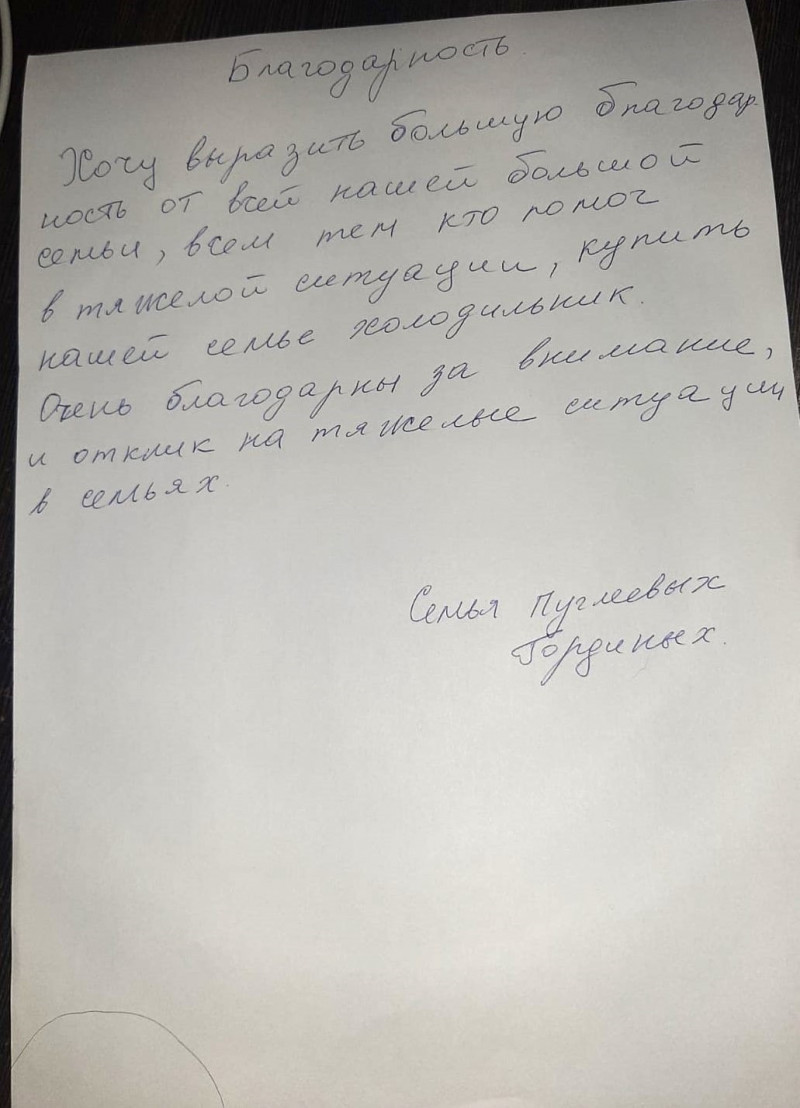 Благодарность.
Хочу выразить большую благодар-
ность от всей нашей большой
семьи, всем тем кто помог
в тяжелой ситуации, купить
нашей семье холодильник.
Очень благодарны за внимание,
и отклик на тяжелые ситуации
в семьях.
Семья Пуглеевых
Гординых.